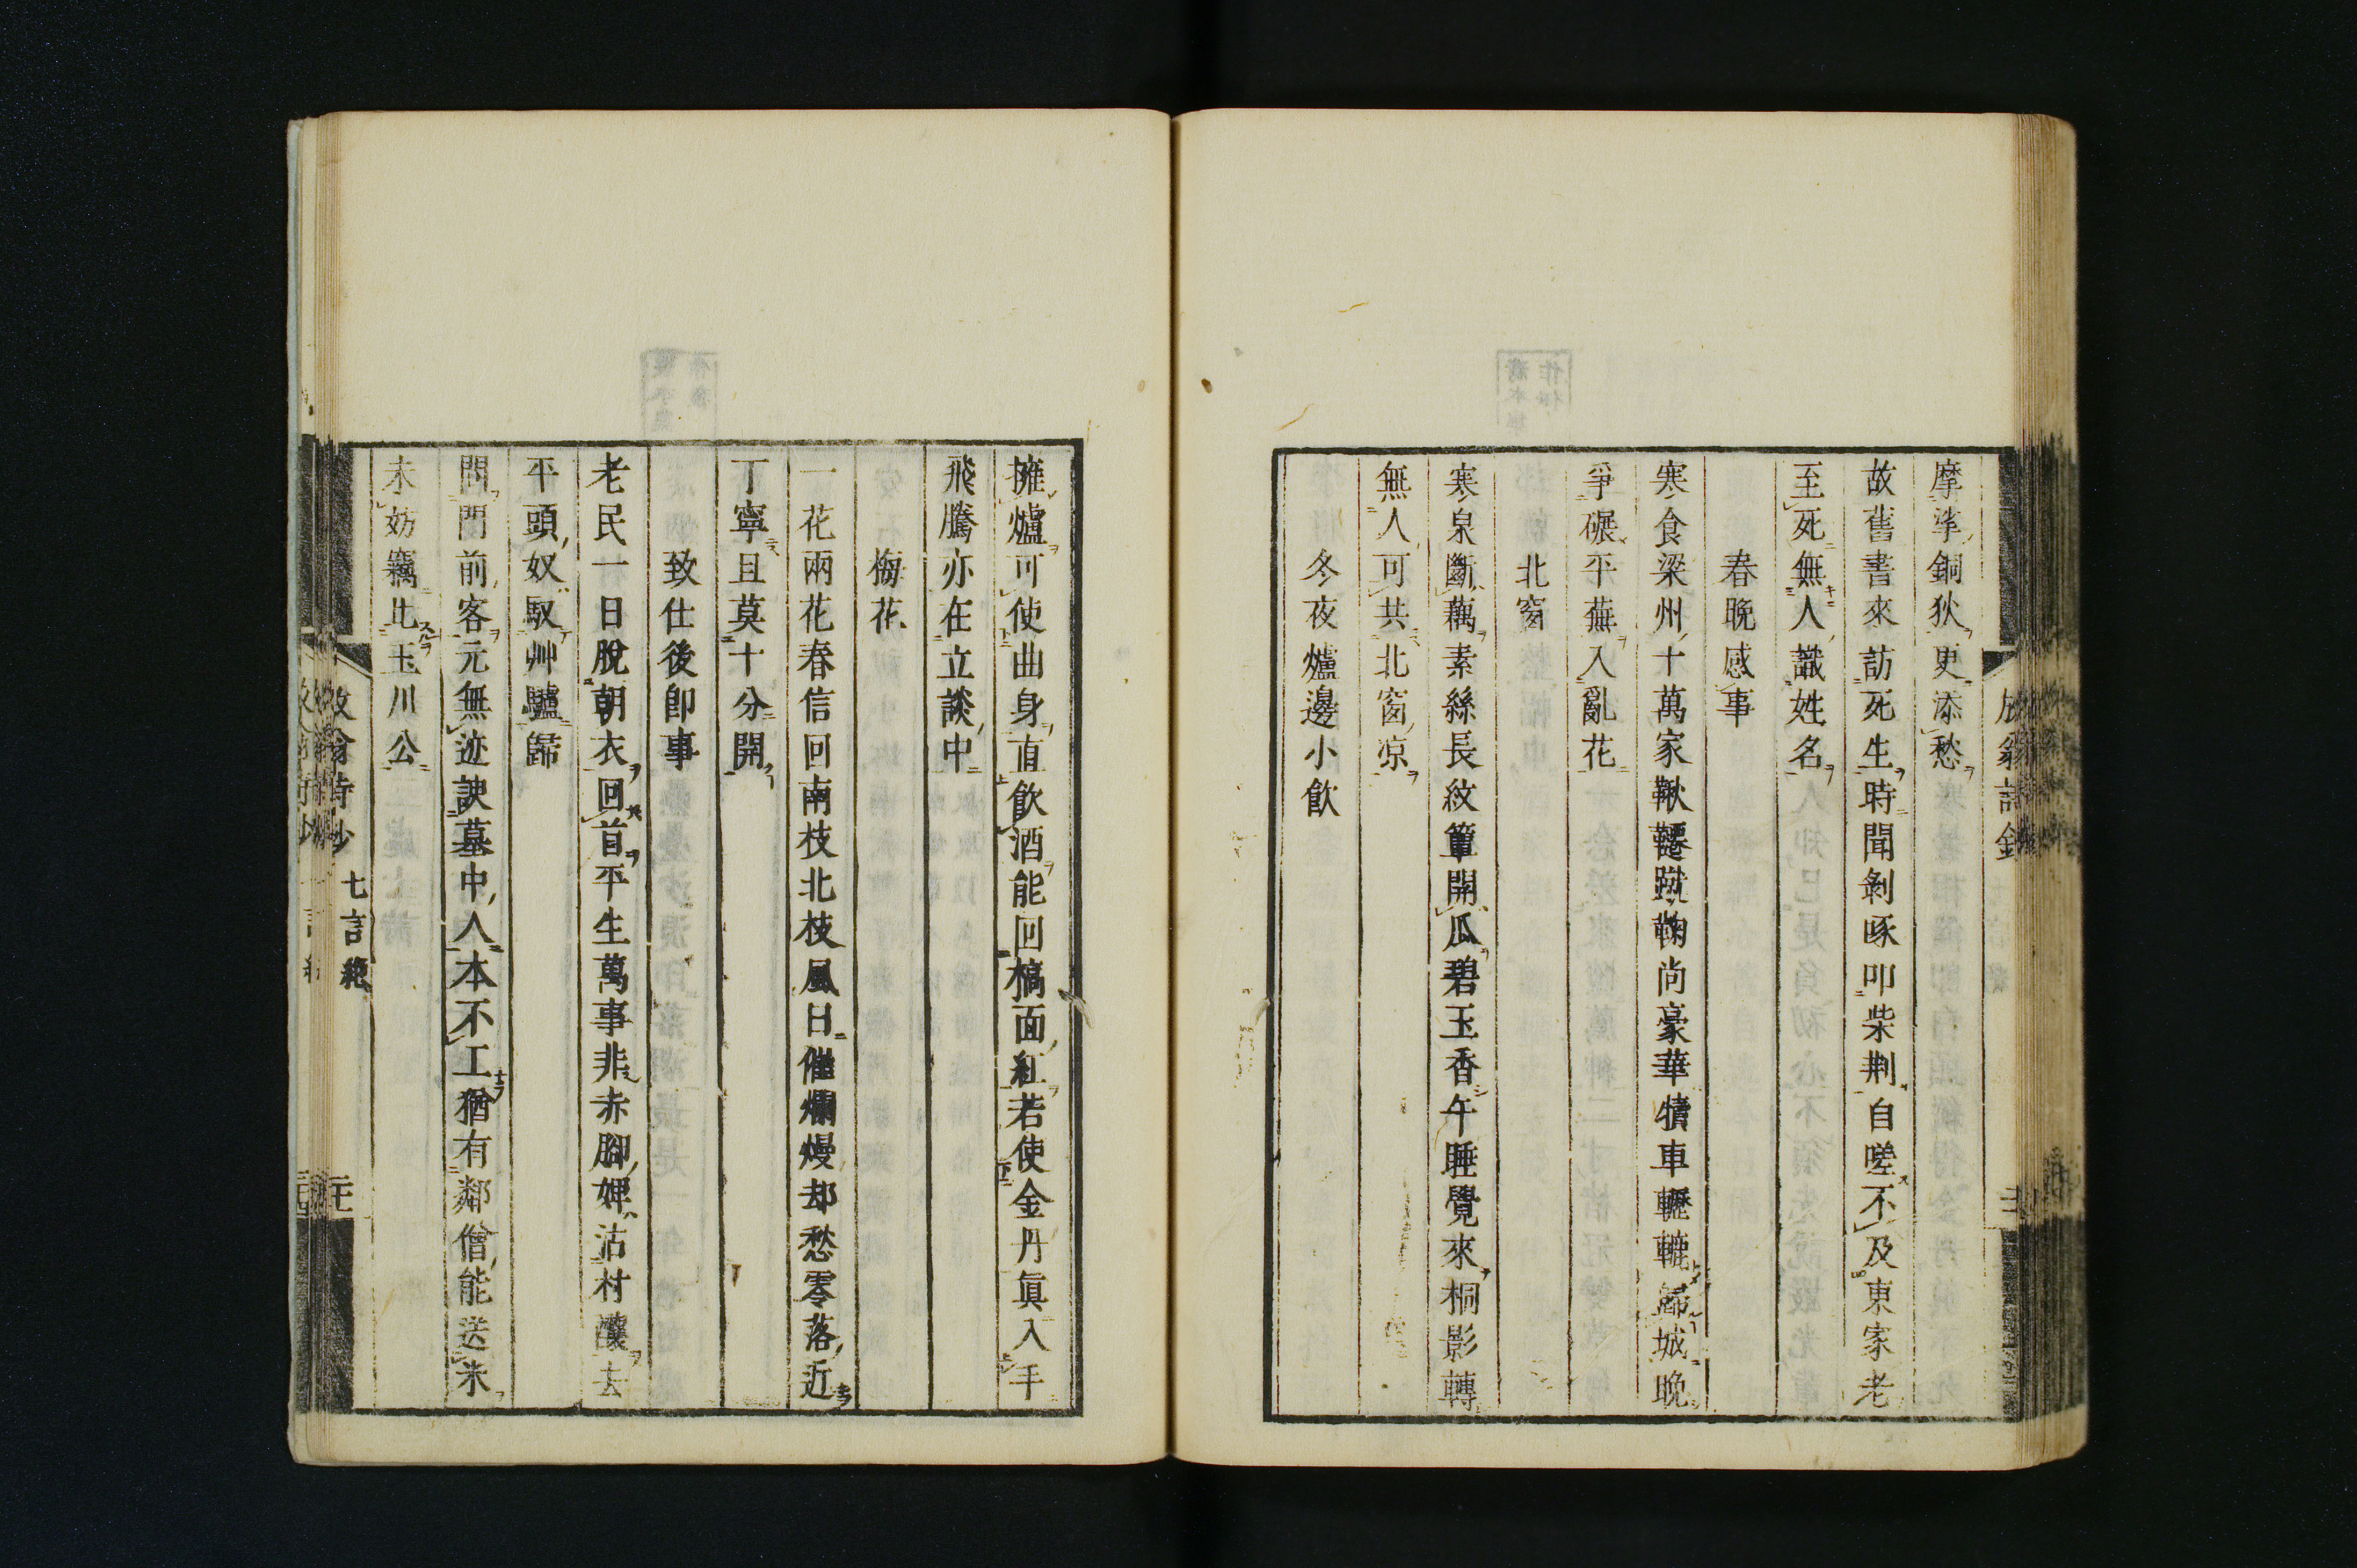 摩挲銅狄更添愁
故舊書來訪死生時聞剝啄叩柴荆自嗟不及東家老
至死無人識姓名
春晚感事
寒食梁州十萬家鞦韆蹴鞠尚豪華犢車轣轆歸城晚
爭碾平蕪入亂花
北窗
寒泉斷藕素絲長紋簟開瓜碧玉香午睡覺來桐影轉
無人可共北窗凉
冬夜爐邊小飲
擁爐可使曲身直飲酒能回槁面紅若使金丹眞入手
飛騰亦在立談中
梅花
一花兩花春信回南枝北枝風日催爛熳却愁零落近
丁寧且莫十分開
致仕後卽事
老民一日脫朝衣回首平生萬事非赤脚婢沽村釀去
平頭奴馭艸驢歸
問門前客元無迹諛墓中人本不工猶有鄰僧能送米
未妨竊比玉川公
放翁詩鈔 七言絕